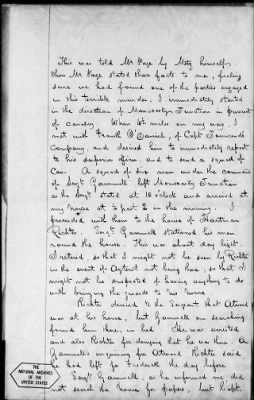 This was told Mr Page by Metz himself.
When Mr Page stated these facts to me, feeling
sure we had found one of the parties engaged
in this terrible murder, I immediately started
in the direction of Monocacy Junction in pursuit
of cavalry. When 1/2 mile on my way, I
met with Frank O'Daniel, of Capt Townsends
Company, and desired him to immediately report
to his superior officer, and to send a squad of
Cav. A squad of six men under the command
of Sergt Gemmill left Monocacy Junction
as the Sergt states at 10 o'clock and arrived at
my house at 1/2 past 2 in the morning. I
proceeded with them to the house of Hartman
Richter. Sergt Gemmill stationed his men
round the house. This was about day light.
I retired, so that I might not be seen by Richter
in the event of Atzerodt not being there, so that I
might not be suspected of having anything to do
with bringing the guards to his house.
Richter denied to the Sergeant that Atwood
was at his house, but Gemmill on searching
found him there, in bed. He was arrested
and also Richter for denying that he was there. On
Gemmill's enquiring for Atwood Richter said
he had left for Frederick the day before
Sergt Gemmill, as he informed me did
not search the house for papers, but Capt.
THE
NATIONAL ARCHIVES
OF THE
UNITED STATES